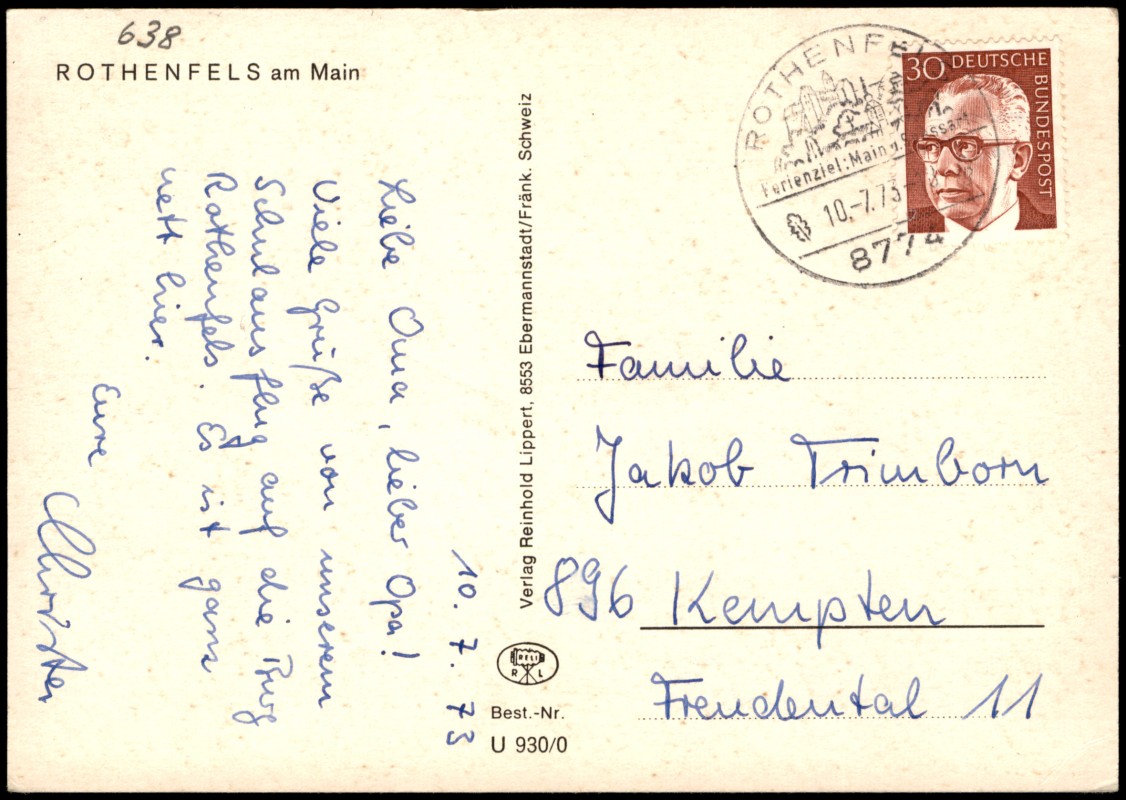 638
ROTHENFELS am Main
10. 7. 73
Liebe Oma, lieber Opa!
Viele Grüße von unserem
Schulausflug auf die Burg
Rothenfels. Es ist ganz
nett hier.
Eure
Verlag Reinhold Lippert, 8553 Ebermannstadt/Fränk. Schweiz
RELI
R L
Best.-Nr.
U 930/0
ROTHENFELS
Ferienziel: Main u. Spessart
10.-7.73-
8774
30 DEUTSCHE
BUNDESPOST
Familie
Jakob Trimborn
896 Kempten
Freudental 11